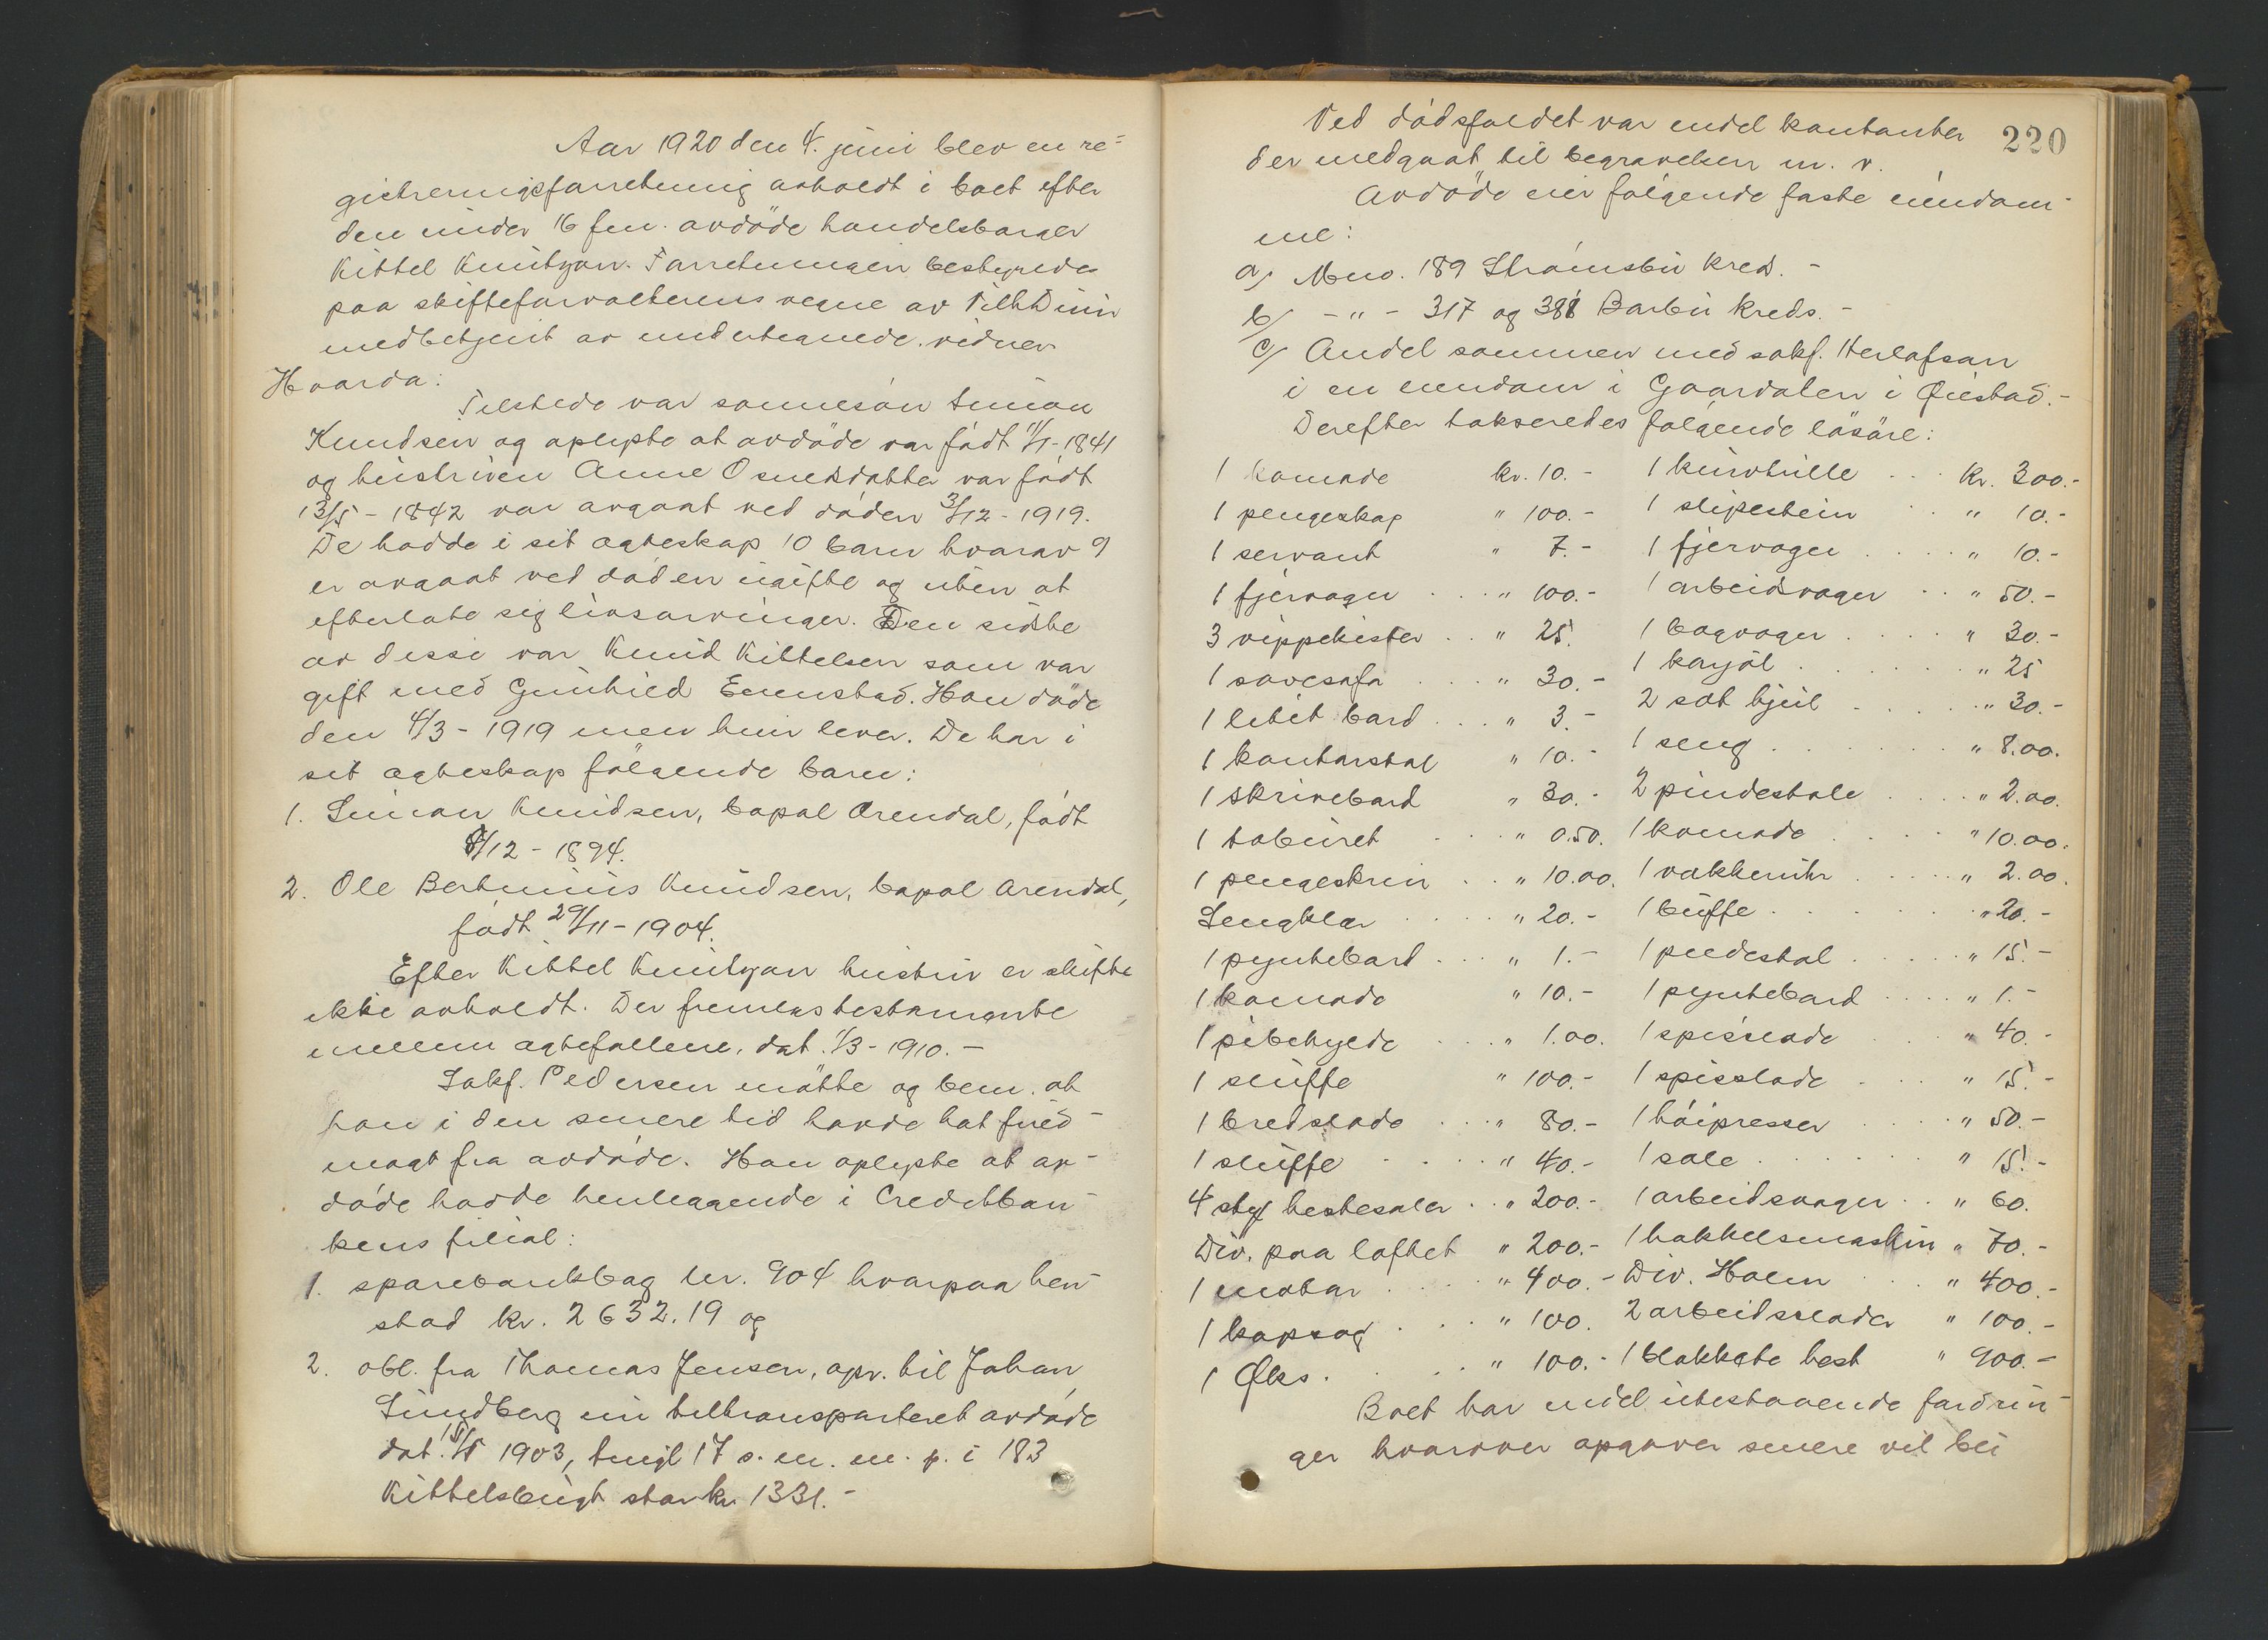 Aar 1920 den 4. juni blev en re-
gistreringsforretning avholdt i boet efter
den under 16 fm. avdöde handelsborger
Kittel Knutzon. Forretningen bestyredes
paa skifteforvalterens vegne av Vilh Duin
medbetjent av undertegnede vidner
Hvorda:
Tilstede var sønnesøn Simon
Knudsen og oplyste at avdöde var född 11/1-1841
og hustruen Anne Osmundsdatter var född
13/5-1842 var avgaat ved döden 3/12-1919.
De hadde i sit egteskap 10 barn hvorav 9
er avgaat ved döden ugifte og uten at
efterlate sig livsarvinger. Den sidste
av disse var Knud Kittelsen som var
gift med Gunhild Evenstad. Han döde
den 4/3-1919 men hun lever. De har i
sit egteskap fölgende barn:
1. Simon Knudsen, bopæl Arendal, födt
8/12-1894.
2. Ole Bertinius Knudsen, bopæl Arendal,
födt 29/11-1904.
Efter Kittel Knutzon hustru er skifte
ikke avholdt. Der fremlas testamente
mellem egtefollene, dat. 1/3-1910.-
Sakf. Pedersen mötte og bem. at
han i den senere tid havde hat fuld-
magt fra avdöde. Han oplyste at av-
döde hadde henleggende i Creditban-
kens filial:
1. sparebankbog nr. 904 hvorpaa hen-
stod kr. 2632.19 og
2. obl. fra Thomas Jensen, opr. til Johan
Lundberg nu tiltransporteret avdöde
dat. 15/5 1903, tingl 17 s. m. m. p. i 183
Kittelsbugt stor kr 1331.-
220
Ved dödsfaldet var endel kontanter
der medgaat til begravelsen m. v.
Avdöde eier fölgende faste eiendom-
me:
a/ Mno. 189 Strömsbu Kreds.-
b/ -"- 317 og 381 Barbu Kreds.-
c/ Andel sammen med sakf. Herlofson
i en eiendom i Gaardalen i Øiestad.-
Derefter takseredes fölgende lösöre:
1 komode kr. 10.- 1 kurvtrille kr. 300.-
1 pengeskap " 100.- 1 slipestein " 10.-
1 servant " 7.- 1 fjervogn " 10.-
1 fjervogn " 100.- 1 arbeidsvogn " 50.-
3 vippekister " 25. 1 bagvogn " 30.-
1 sovesofa " 30.- 1 karjol " 25
1 litet bord " 3.- 2 sæt hjul " 30.-
1 kontorstol " 10.- 1 seng " 8.00.
1 skrivebord " 30.- 2 pindestole " 2.00.
1 taburet " 0.50. 1 komode " 10.00.
1 pengeskrin " 10.00. 1 vækkeruhr " 2.00.
Sengklær " 20.- 1 buffe " 20.-
1 pyntebord " 1.- 1 piedestal " 15.-
1 komode " 10.- 1 pyntebord " 1.-
1 pibehylde " 1.00. 1 spisslade " 40.-
1 sluffe " 100.- 1 spisslade " 15.-
1 bredslade " 80.- 1 höipresser " 50.-
1 sluffe " 40.- 1 sale " 15.-
4 sty hestesaler " 200.- 1 arbeidsvogn " 60.
Div. paa loftet " 200.- 1 hakkelsmaskin " 70.-
1 motor " 400.- Div. Halm " 400.-
1 kapsag " 100. 2 arbeidsslader " 100.-
1 Øks. " 100.- 1 blakkete hest " 900.-
Boet har endel utestaaende fordrin-
ger hvorover opgaver senere vil bli